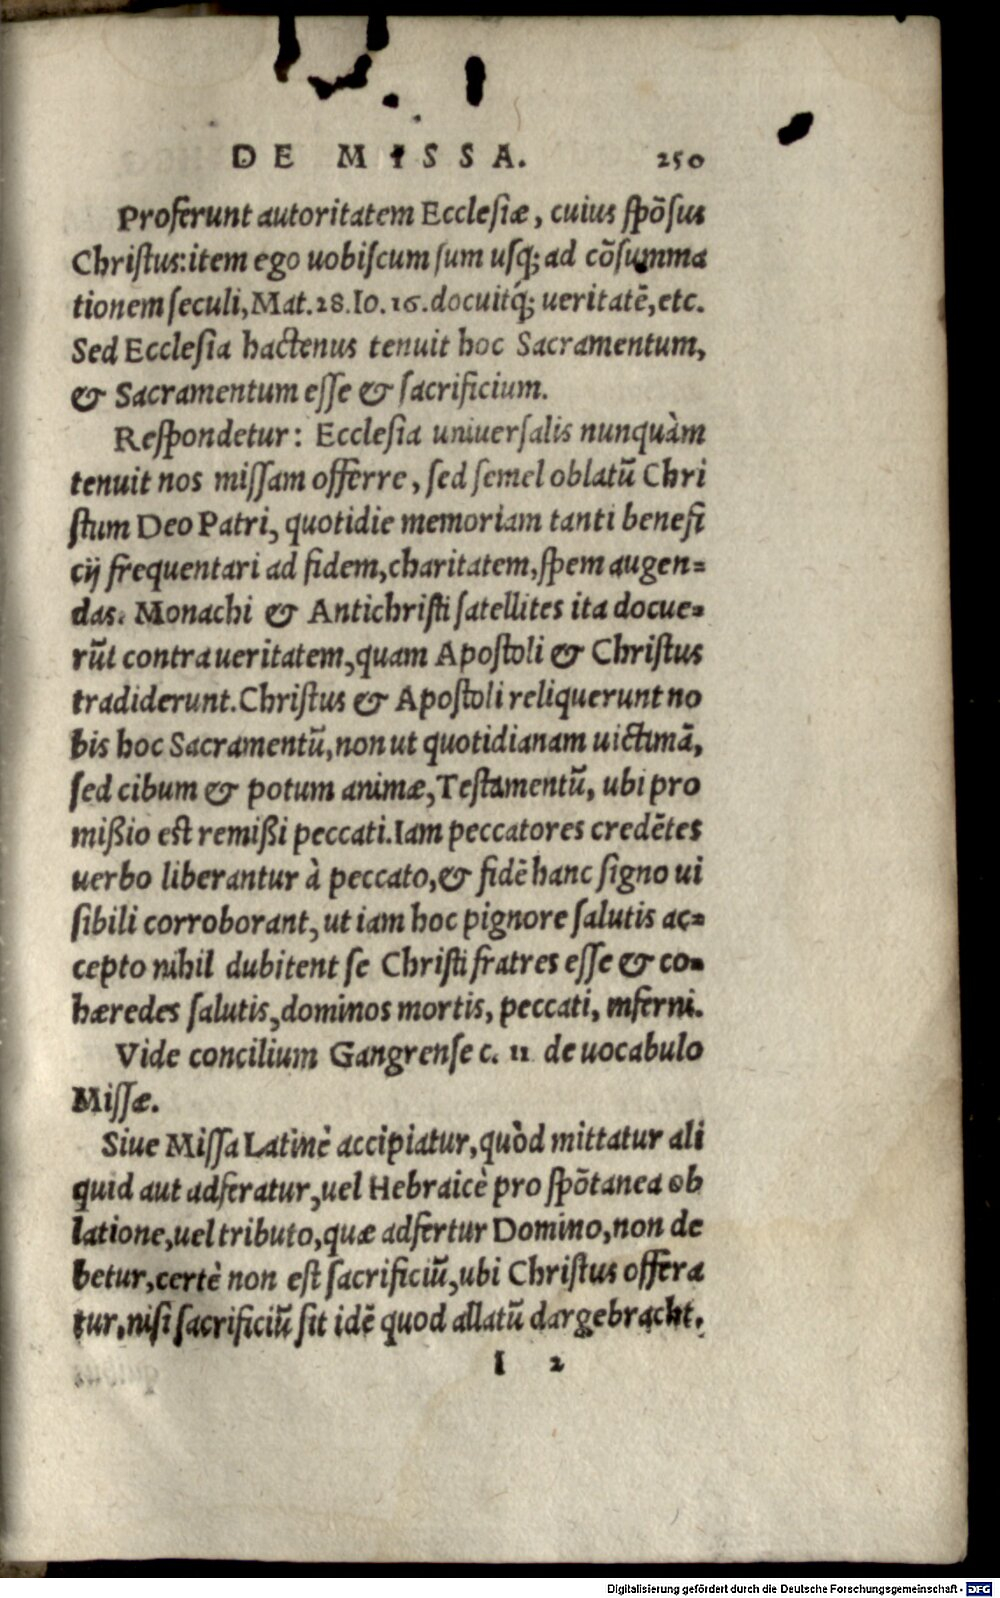 DE MISSA. 250
Proferunt autoritatem Ecclesiæ, cuius spōsus
Christus: item ego uobiscum sum usq; ad cōsumma
tionem seculi, Mat. 28. Io. 16. docuitq́; ueritatē, etc.
Sed Ecclesia hactenus tenuit hoc Sacramentum,
& Sacramentum esse & sacrificium.
Respondetur: Ecclesia uniuersalis nunquàm
tenuit nos missam offerre, sed semel oblatū Chri
stum Deo Patri, quotidie memoriam tanti benefi
cij frequentari ad fidem, charitatem, spem augen=
das. Monachi & Antichristi satellites ita docue=
rūt contra ueritatem, quam Apostoli & Christus
tradiderunt. Christus & Apostoli reliquerunt no
bis hoc Sacramentū, non ut quotidianam uictimā,
sed cibum & potum animæ, Testamentū, ubi pro
mißio est remißi peccati. Iam peccatores credētes
uerbo liberantur à peccato, & fidē hanc signo ui
sibili corroborant, ut iam hoc pignore salutis ac=
cepto nihil dubitent se Christi fratres esse & co=
hæredes salutis, dominos mortis, peccati, inferni.
Vide concilium Gangrense c. 11 de uocabulo
Missæ.
Siue Missa Latinè accipiatur, quòd mittatur ali
quid aut adferatur, uel Hebraicè pro spōtanea ob
latione, uel tributo, quæ adfertur Domino, non de
betur, certè non est sacrificiū, ubi Christus offera
tur, nisi sacrificiū sit idē quod allatū dargebracht.
I 2
Digitalisierung gefördert durch die Deutsche Forschungsgemeinschaft - DFG